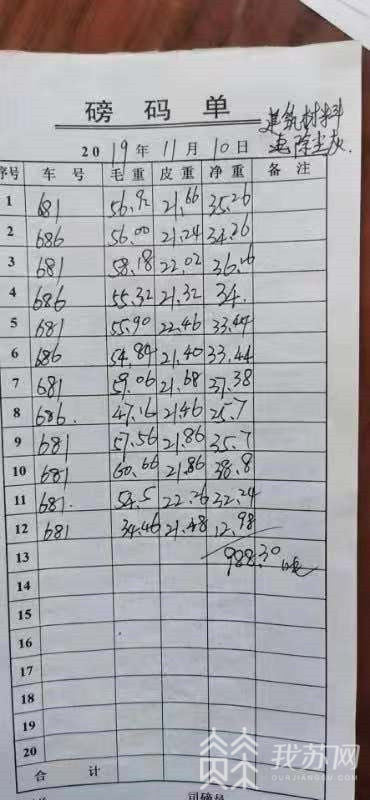 磅码单
建筑材料
电除尘灰
2019年11月10日
序号 车号 毛重 皮重 净重 备注
1 681 56.92 21.66 35.26
2 686 56.00 21.24 34.26
3 681 58.18 22.02 36.16
4 686 55.32 21.32 34.
5 681 55.90 22.46 33.44
6 686 54.84 21.40 33.44
7 681 59.06 21.68 37.38
8 686. 47.16 21.46 25.7
9 681 57.56 21.86 35.7
10 681 60.66 21.86 38.8
11 681. 54.5 22.26 32.24
12 681 34.46 21.48 12.98
13 988.30吨
14
15
16
17
18
19
20
合计
司磅员
我苏网
OURJIANGSU.COM